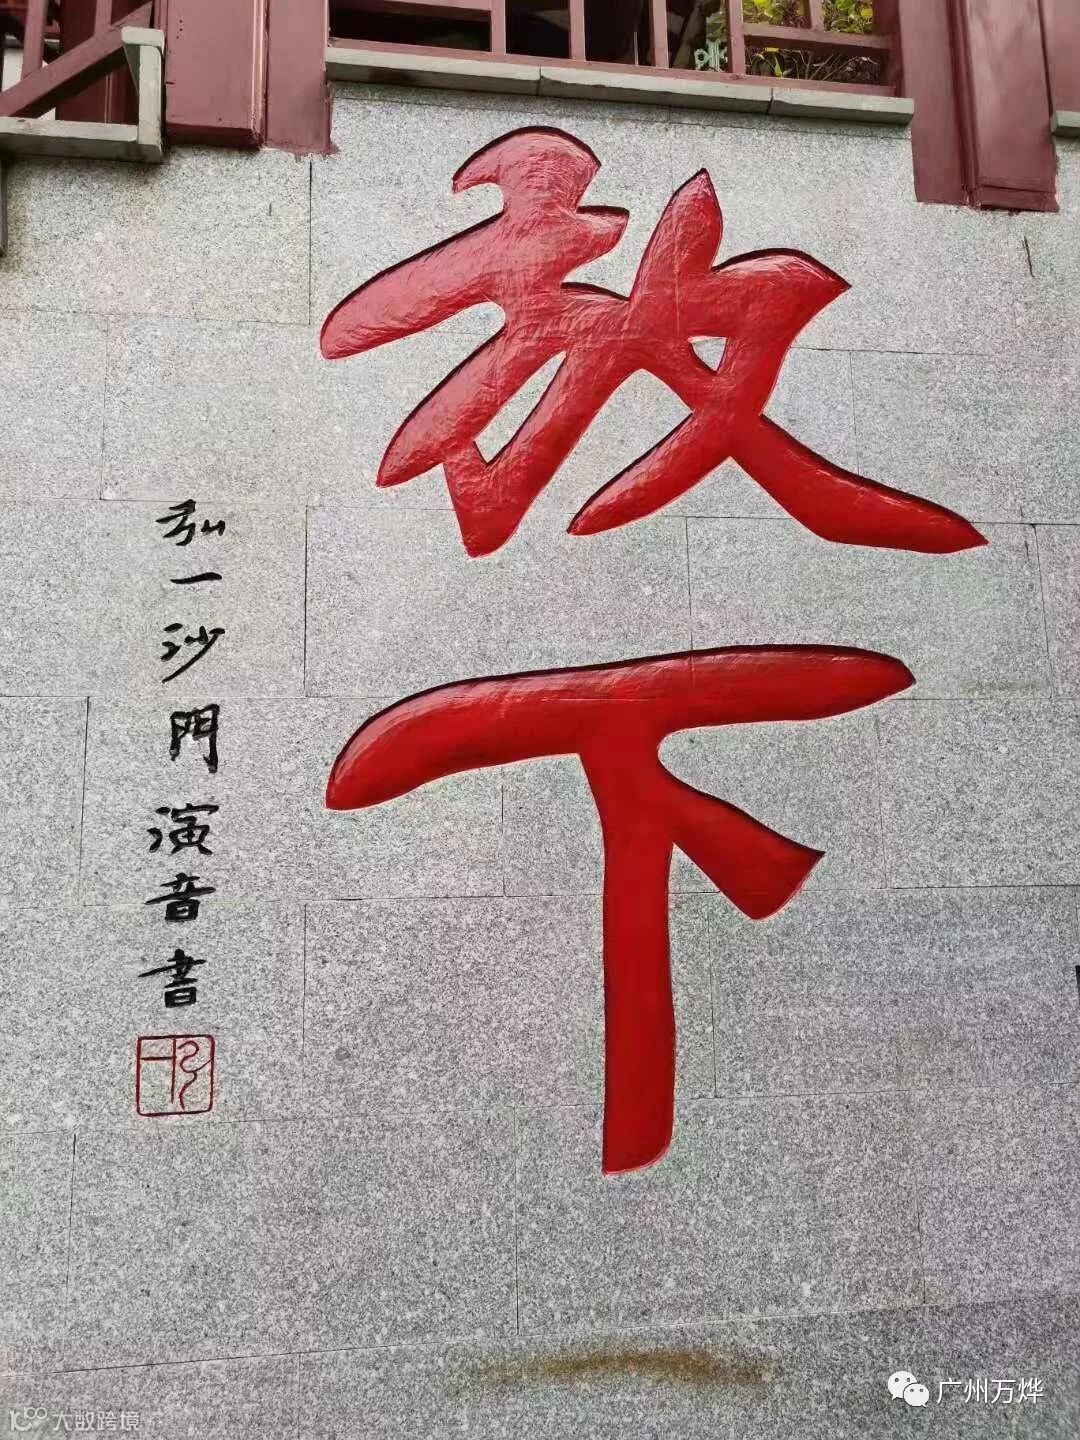 放下
弘一沙門演音書
广州万烨
大数跨境